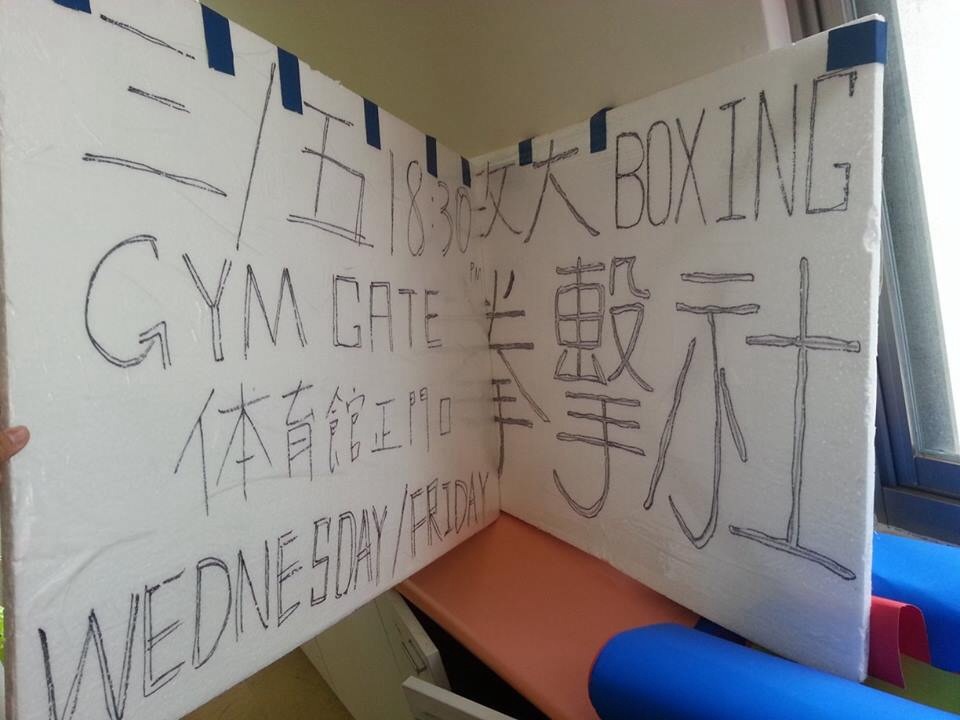 三/五 18:30
PM
GYM GATE
体育館正門口
WEDNESDAY/FRIDAY
政大 BOXING
拳擊社